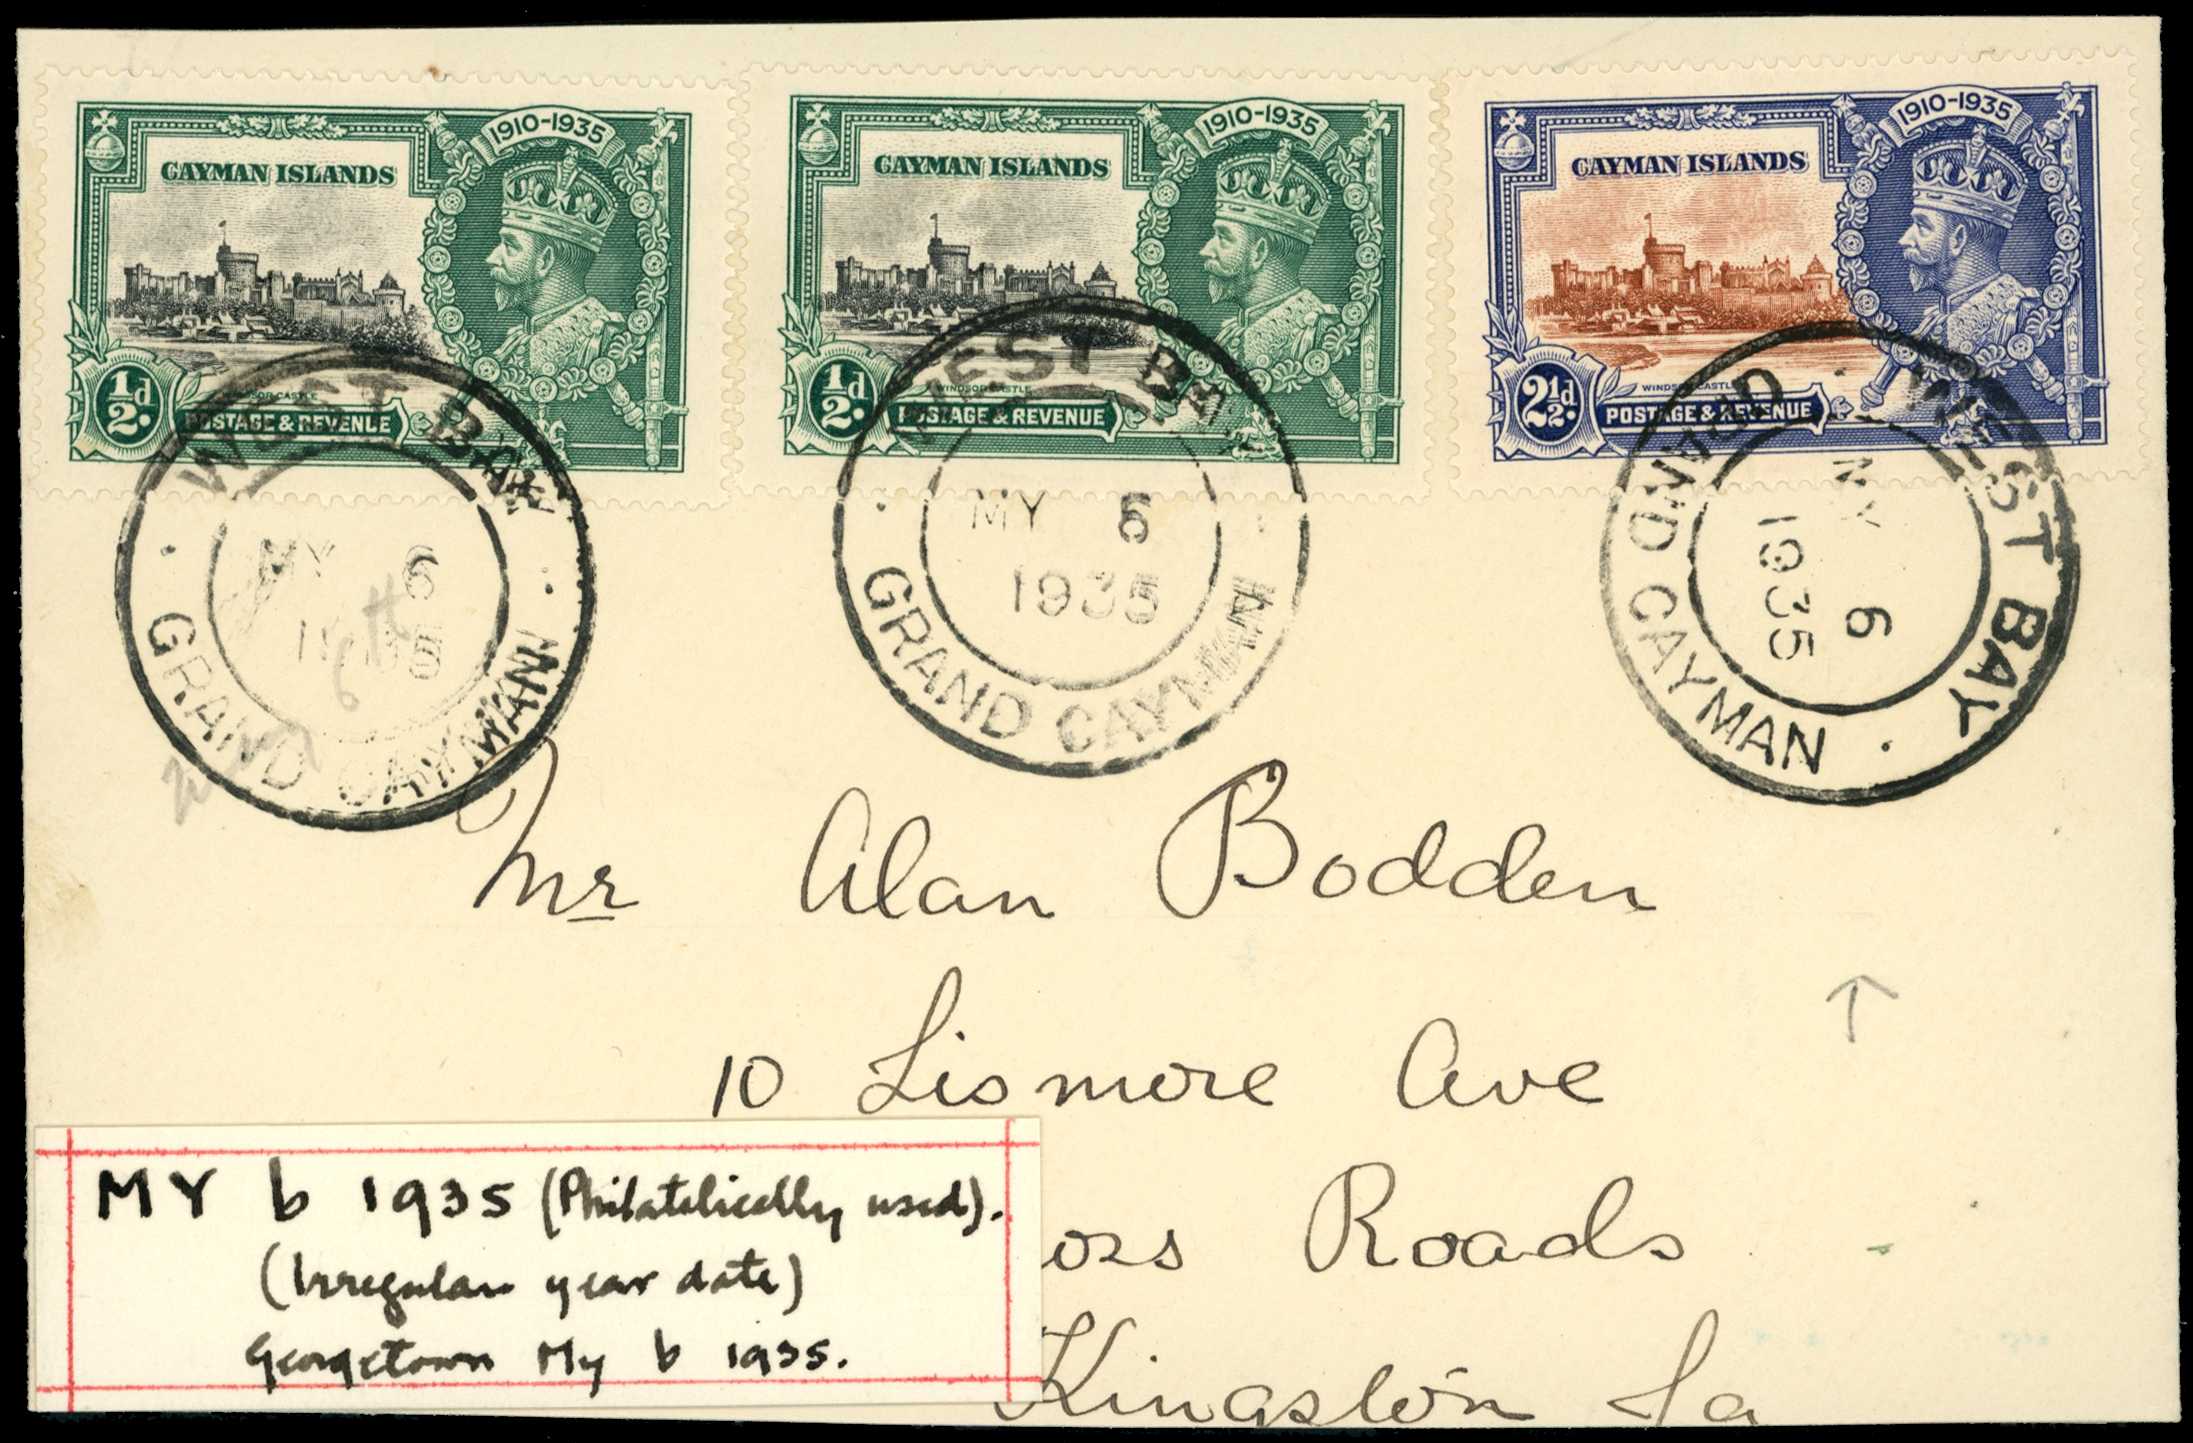 1910-1935
CAYMAN ISLANDS
WINDSOR CASTLE
½d.
POSTAGE & REVENUE
1910-1935
CAYMAN ISLANDS
WINDSOR CASTLE
½d.
POSTAGE & REVENUE
1910-1935
CAYMAN ISLANDS
WINDSOR CASTLE
2½d.
POSTAGE & REVENUE
WEST BAY
MY 6
1935
GRAND CAYMAN
6th
WEST BAY
MY 6
1935
GRAND CAYMAN
WEST BAY
MY 6
1935
GRAND CAYMAN
Mr Alan Bodden
10 Lismore Ave
oss Roads
Kingston Ja
MY 6 1935 (Philatelically used).
(Irregular year date)
Georgetown My 6 1935.